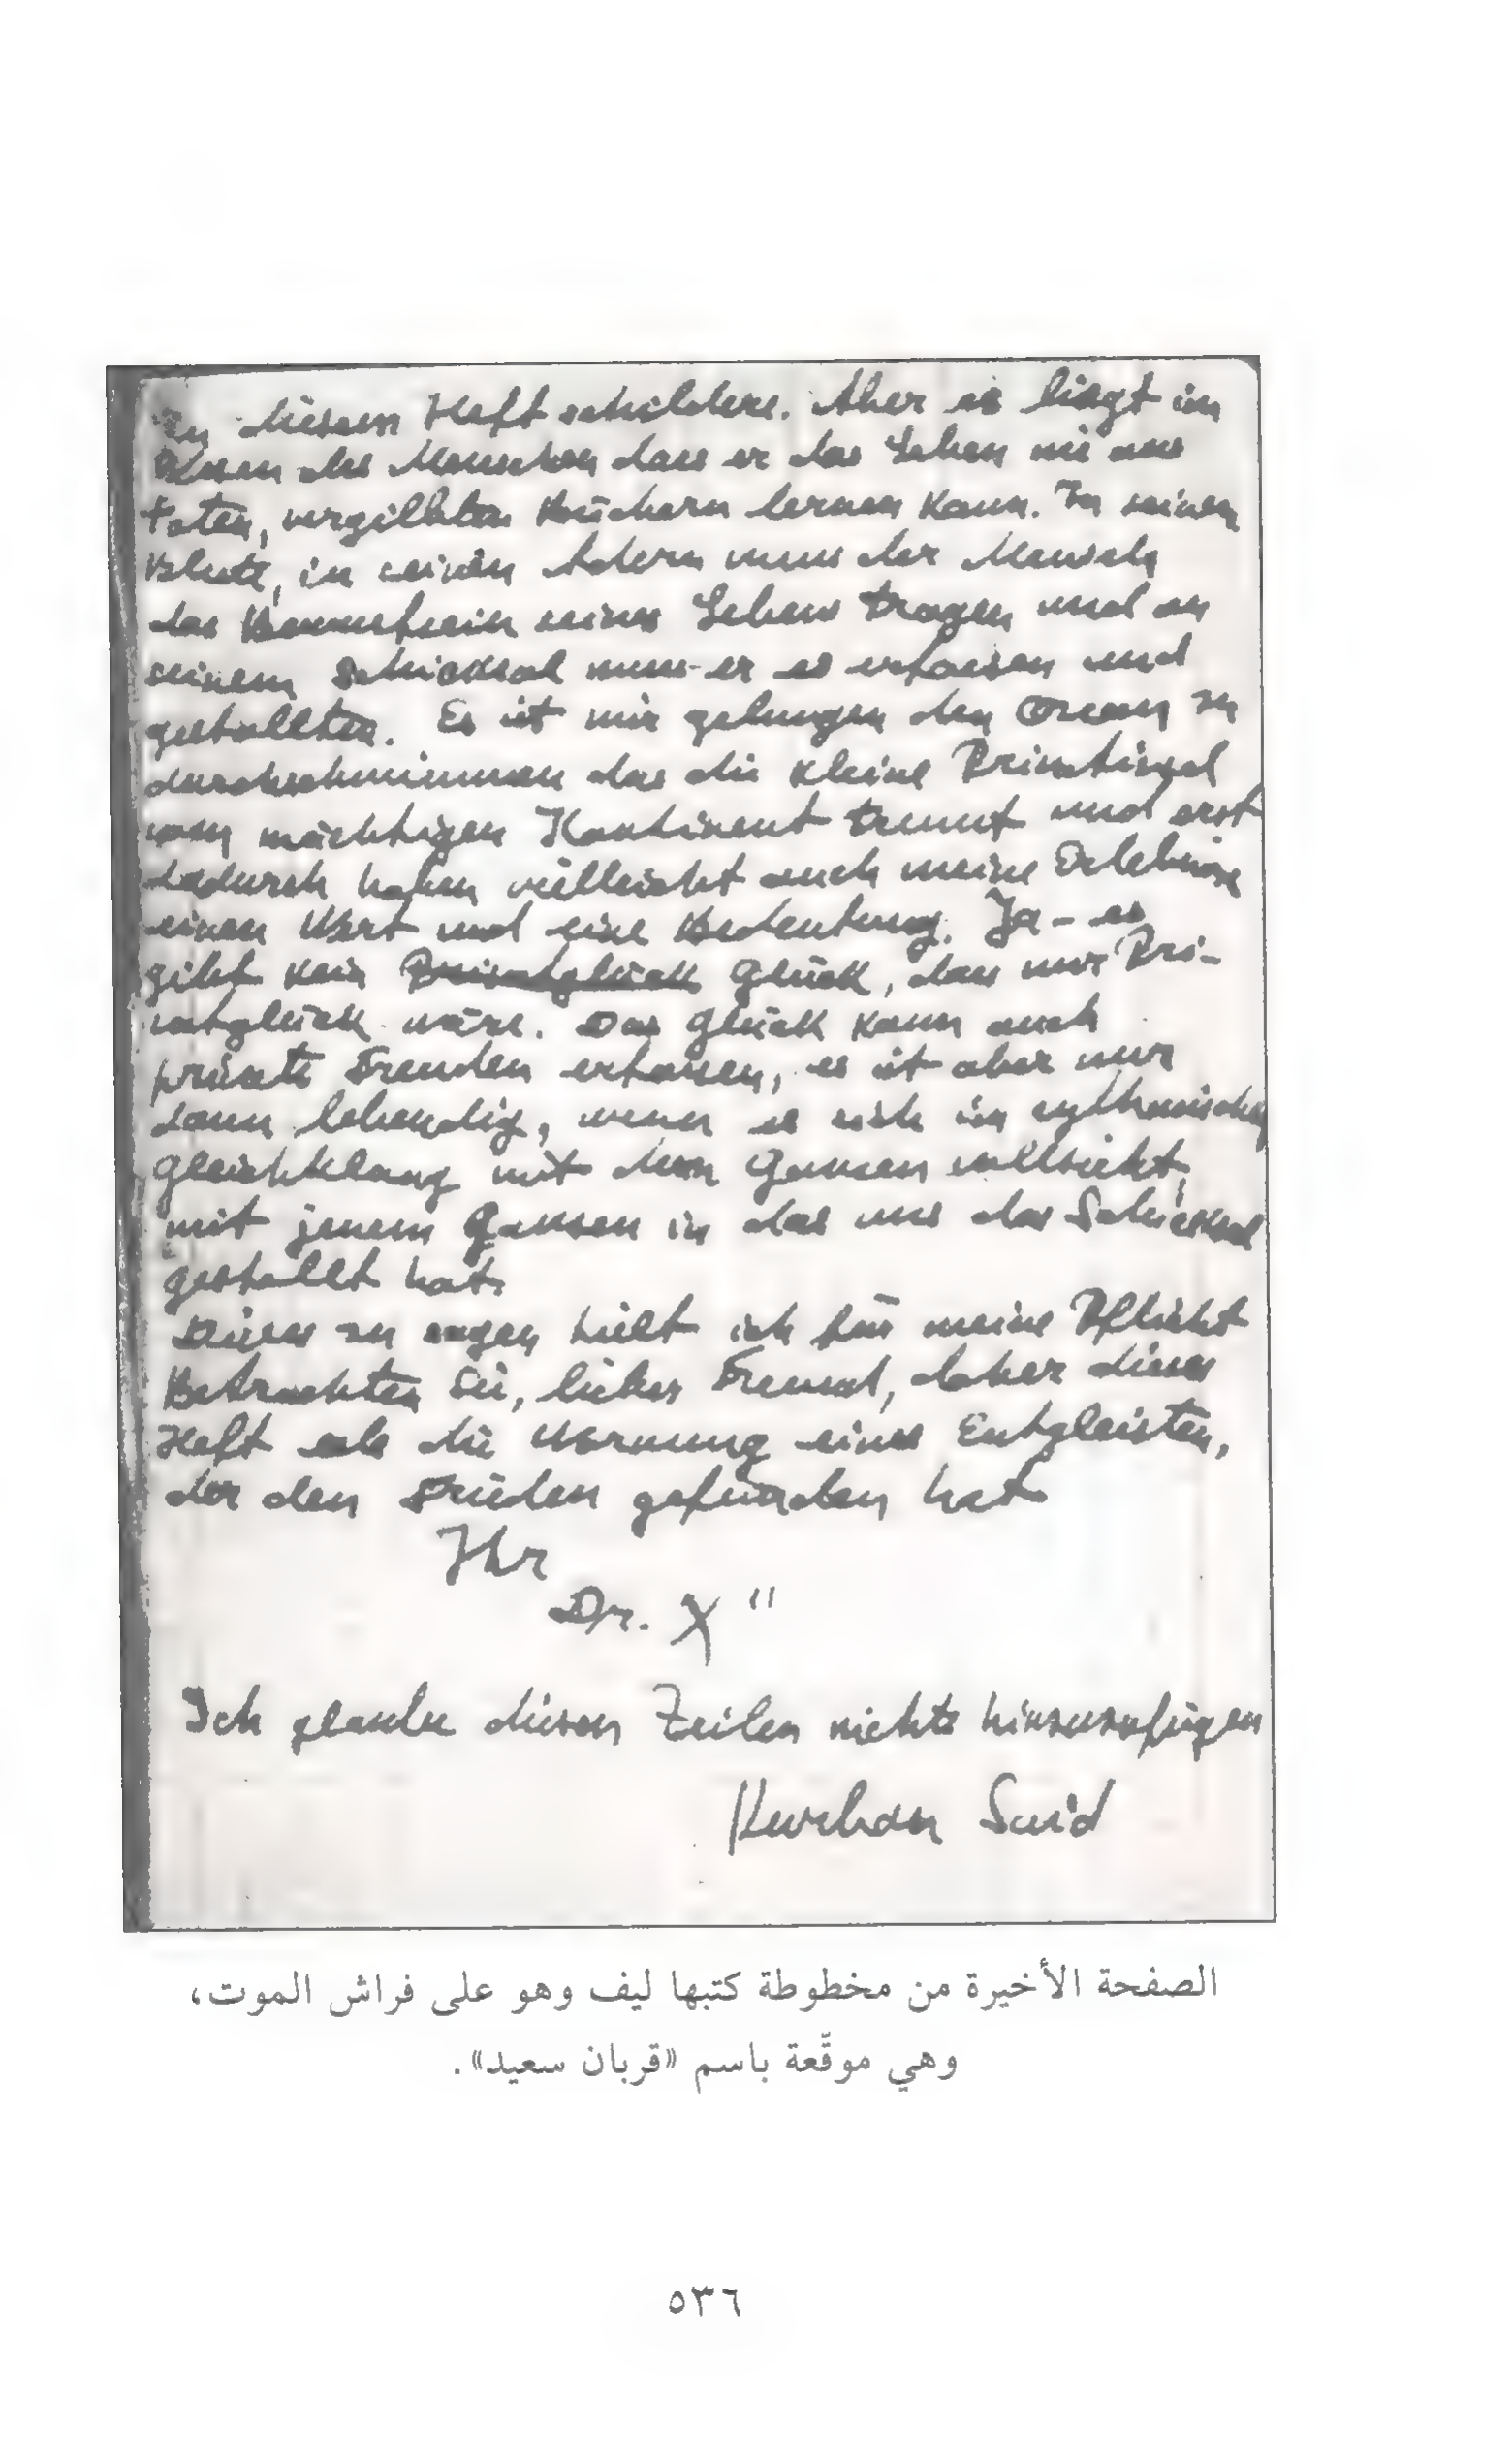 in diesem Heft schildere. Aber es liegt im
Wesen des Menschen dass er das Leben nie aus
toten, vergilbten Büchern lernen kann. In seinem
Blute, in seinen Adern muss der Mensch
das Bewustsein seines Lebens tragen und an
seinem Schicksal muss er es erfassen und
gestallten. Es ist mir gelungen den Ocean zu
durchschwimmen das die kleine Privatinsel
vom mächtigen Kontinent trennt und erst
dadurch haben vielleicht auch meine Erlebnisse
einen Wert und eine Bedeutung. Ja – es
gibt kein Privatglück Glück, das nur Pri-
vatglück wäre. Das Glück kann auch
private Freuden erfassen, es ist aber nur
dann lebendig, wenn es sich im rythmischen
Gleichklang mit dem Ganzen vollzieht,
mit jenem Ganzen in das uns das Schicksal
gestellt hat.
Dieses zu sagen hielt ich für meine Pflicht
Betrachten Sie, lieber Freund, daher dieses
Heft als die Warnung eines Entgleisten,
der den Frieden gefunden hat
Ihr
Dr. X"
Ich glaube diesen Zeilen nichts hinzuzufügen
Kurban Said
الصفحة الأخيرة من مخطوطة كتبها ليف وهو على فراش الموت،
وهي موقّعة باسم «قربان سعيد».
٥٣٦